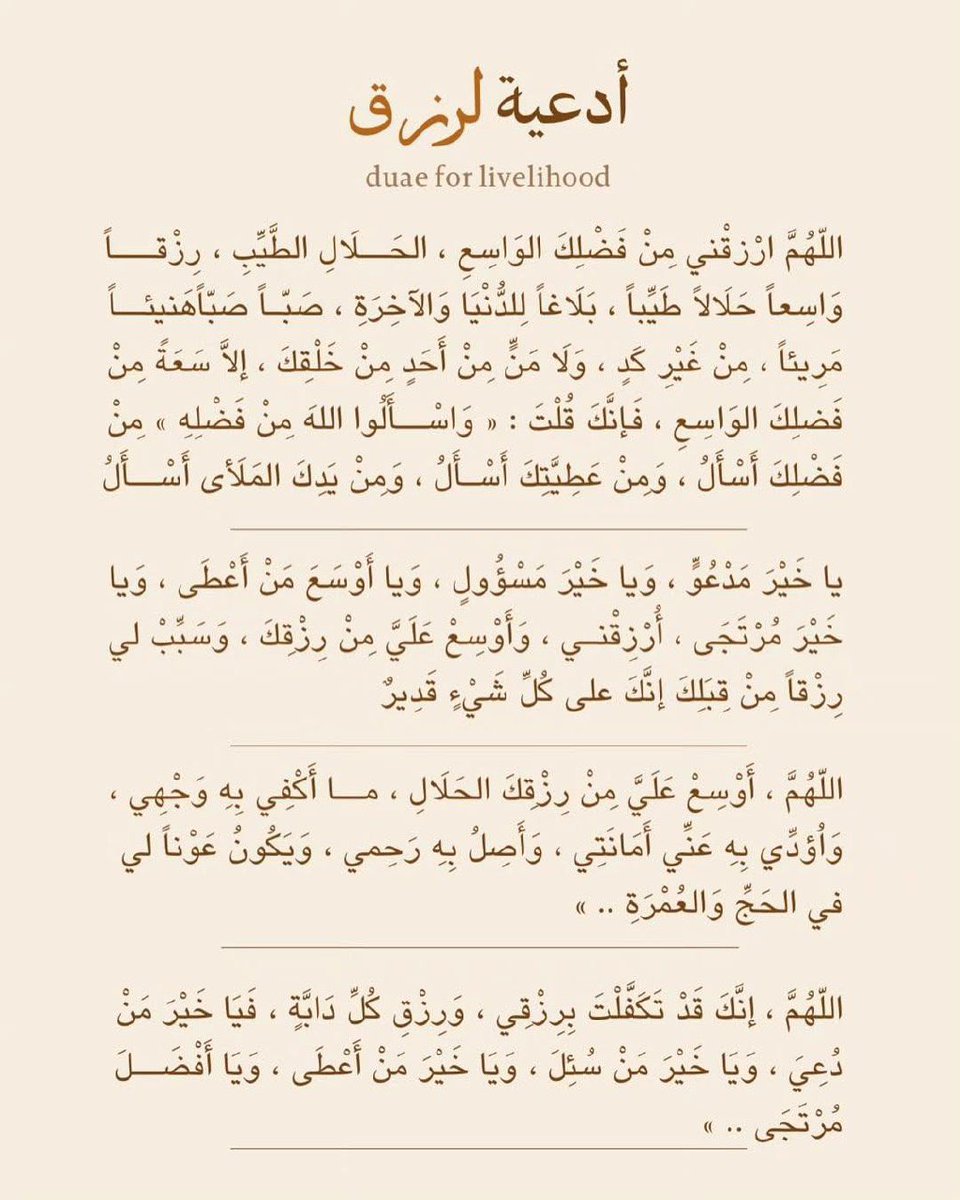 أدعية لرزق
duae for livelihood
اللّهُمَّ ارْزقْني مِنْ فَضْلِكَ الوَاسِعِ ، الحَـــلَالِ الطَّيِّبِ ، رِزْقــــاً
وَاسِعاً حَلَالاً طَيِّباً ، بَلَاغاً لِلدُّنْيَا وَالآخِرَةِ ، صَبّــاً صَبّاًهَنيئــــاً
مَرِيئاً ، مِنْ غَيْرِ كَدٍ ، وَلَا مَنٍّ مِنْ أَحَدٍ مِنْ خَلْقِكَ ، إلاَّ سَعَةً مِنْ
فَضلِكَ الوَاسِعِ ، فَإنَّكَ قُلْتَ : « وَاسْـــأَلُوا اللهَ مِنْ فَضْلِهِ » مِنْ
فَضْلِكَ أَسْأَلُ ، وَمِنْ عَطِيَّتِكَ أَسْـأَلُ ، وَمِنْ يَدِكَ المَلَأى أَسْـــأَلُ
يا خَيْرَ مَدْعُوٍّ ، وَيا خَيْرَ مَسْؤُولٍ ، وَيا أَوْسَعَ مَنْ أَعْطَى ، وَيا
خَيْرَ مُرْتَجَى ، أُرْزِقْنــي ، وَأَوْسِعْ عَلَيَّ مِنْ رِزْقِكَ ، وَسَبِّبْ لي
رِزْقاً مِنْ قِبَلِكَ إنَّكَ على كُلِّ شَيْءٍ قَدِيرٌ
اللّهُمَّ ، أَوْسِعْ عَلَيَّ مِنْ رِزقِكَ الحَلَالِ ، مـــا أَكْفِي بِهِ وَجْهِي ،
وَاُؤدِّي بِهِ عَنِّي أَمَانَتِي ، وَأَصِلُ بِهِ رَحِمي ، وَيَكُونُ عَوْناً لي
في الحَجِّ وَالعُمْرَةِ .. »
اللّهُمَّ ، إنَّكَ قَدْ تَكَفَّلْتَ بِرِزْقِي ، وَرِزْقِ كُلِّ دَابَّةٍ ، فَيَا خَيْرَ مَنْ
دُعِيَ ، وَيَا خَيْرَ مَنْ سُئِلَ ، وَيَا خَيْرَ مَنْ أَعْطَى ، وَيَا أَفْضَـــلَ
مُرْتَجَى .. »